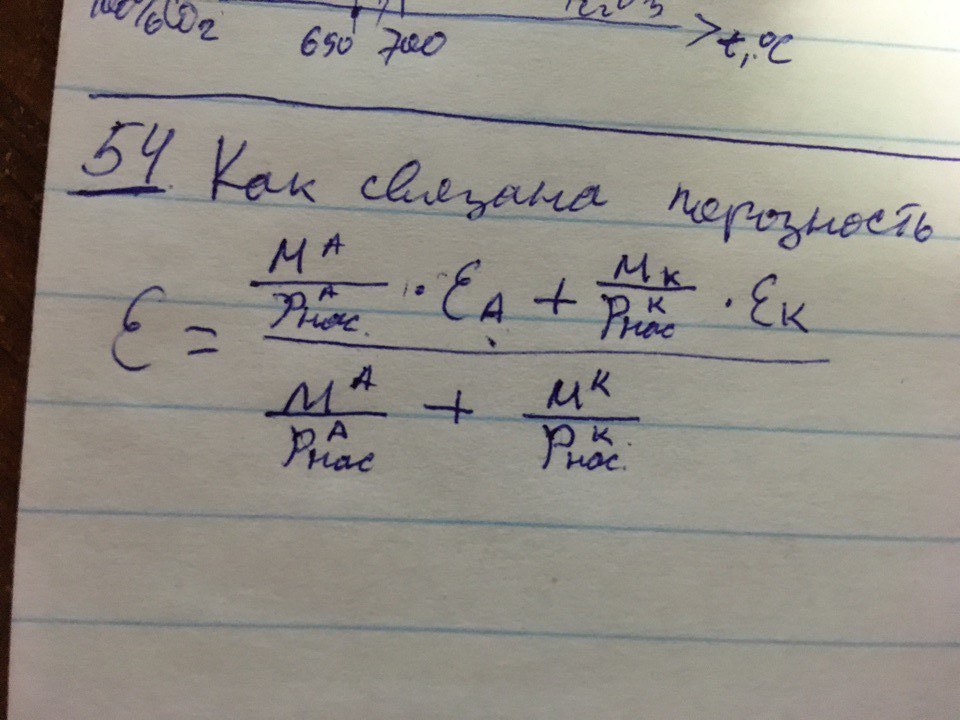 100%CO2
650 700 t,°C
54. Как связана порозность
ε = (M^A/P^A нас. · ε_A + M_K/P^K нас · ε_K) / (M^A/P^A нас + M^K/P^K нас.)